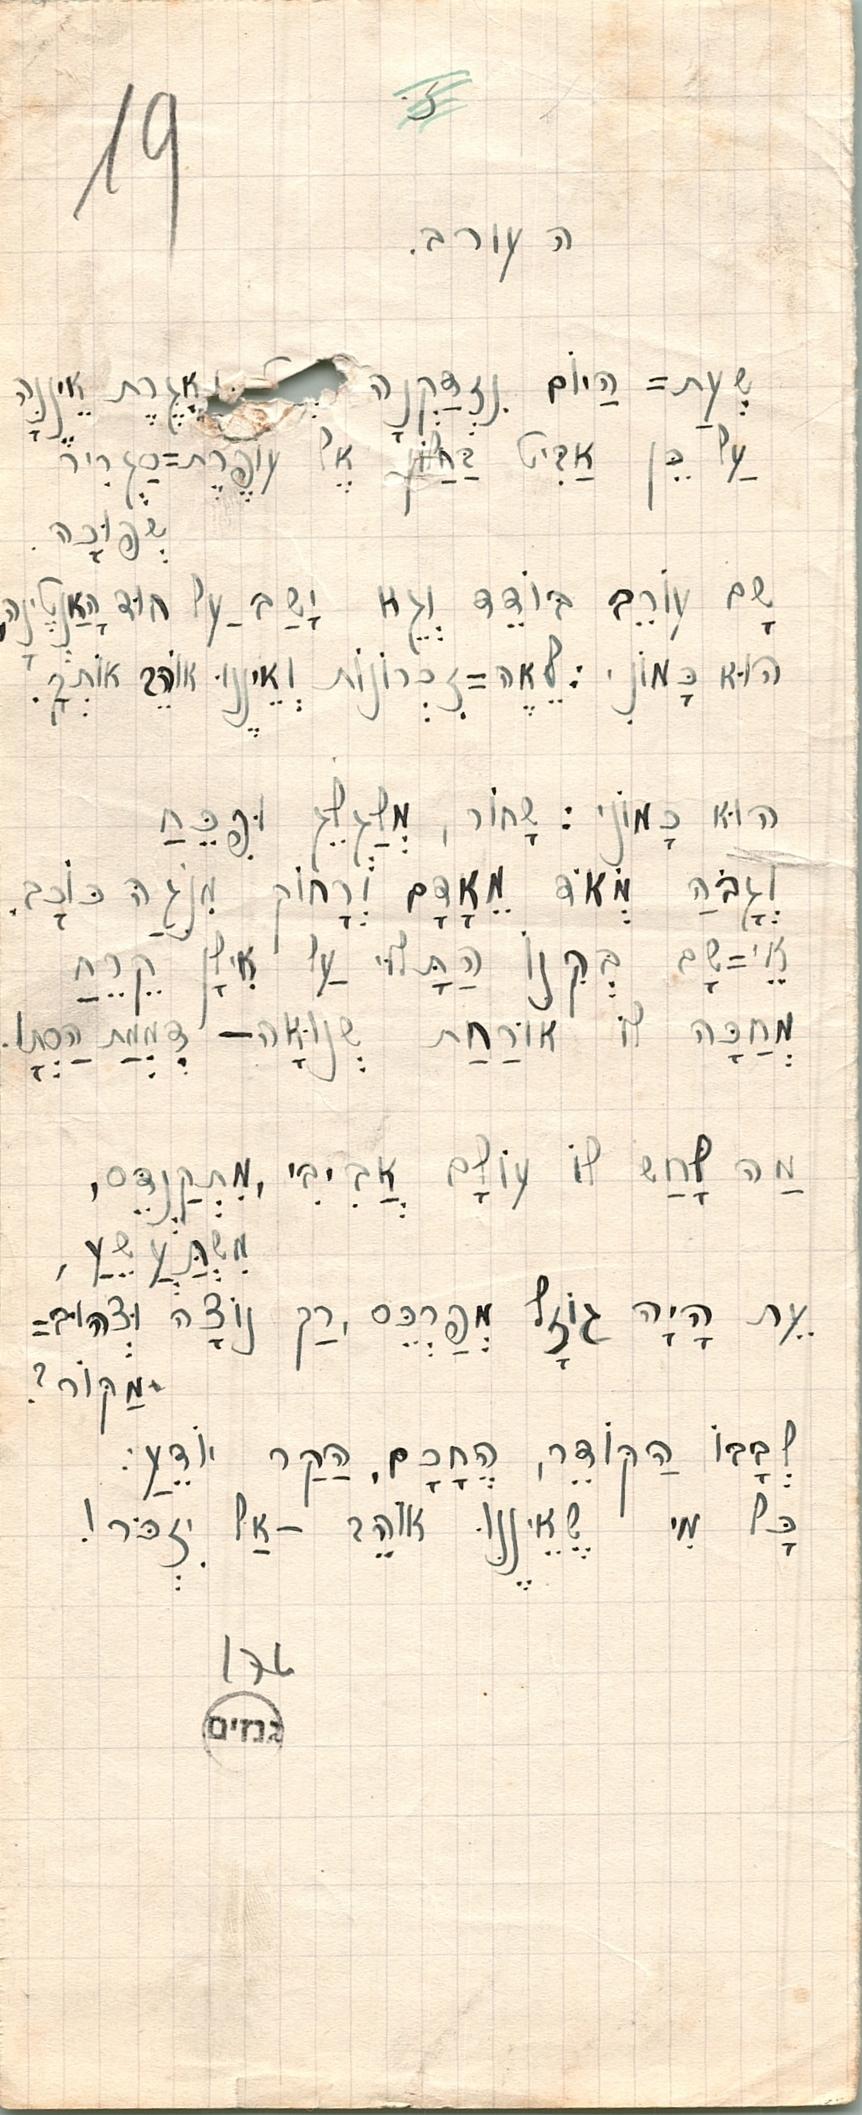 19
ז.
ה עורב.
שְׁעַת= הַיּוֹם נִזְדַּקְּנָה וְאִגֶּרֶת אֵינֶנָּה
עַל כֵּן אַבִּיט בַּחַלּוֹן אֶל עוֹפֶרֶת=סַגְרִיר
שְׁפוּכָה.
שָׁם עוֹרֵב בּוֹדֵד וְגֵא יָשַׁב עַל חוּד הָאַנְטֶנָה,
הוּא כָּמוֹנִי: לֵאֶה=זִכְרוֹנוֹת וְאֵינֶנּוּ אוֹהֵב אוֹתְךָ.
הוּא כָּמוֹנִי: שָׁחוֹר, מְלַגְלֵג וּפִכֵּחַ
וְגָבֹהַּ מְאֹד מֵאָדָם וְרָחוֹק מִנֹּגַהּ כּוֹכָב.
אֵי=שָׁם בְּקִנּוֹ הַתָּלוּי עַל אִילָן קֵרֵחַ
מְחַכָּה לוֹ אוֹרַחַת שְׂנוּאָה– דִּמְמַת הַסְּתָו.
מַה לָּחַשׁ לוֹ עוֹלָם אֲבִיבִי, מִתְקַנְדֵּס,
מִשְׁתַּעֲשֵׁעַ,
עֵת הָיָה גּוֹזָל מְפַרְכֵּס, רַק נוֹצָה וּצְהוּב=
מַקּוֹר?
לְבָבוֹ הַקּוֹדֵר, הֶחָכָם, הַקַּר יוֹדֵעַ:
כָּל מִי שֶׁאֵינֶנּוּ אוֹהֵב –אַל יִזְכֹּר!
גנזים